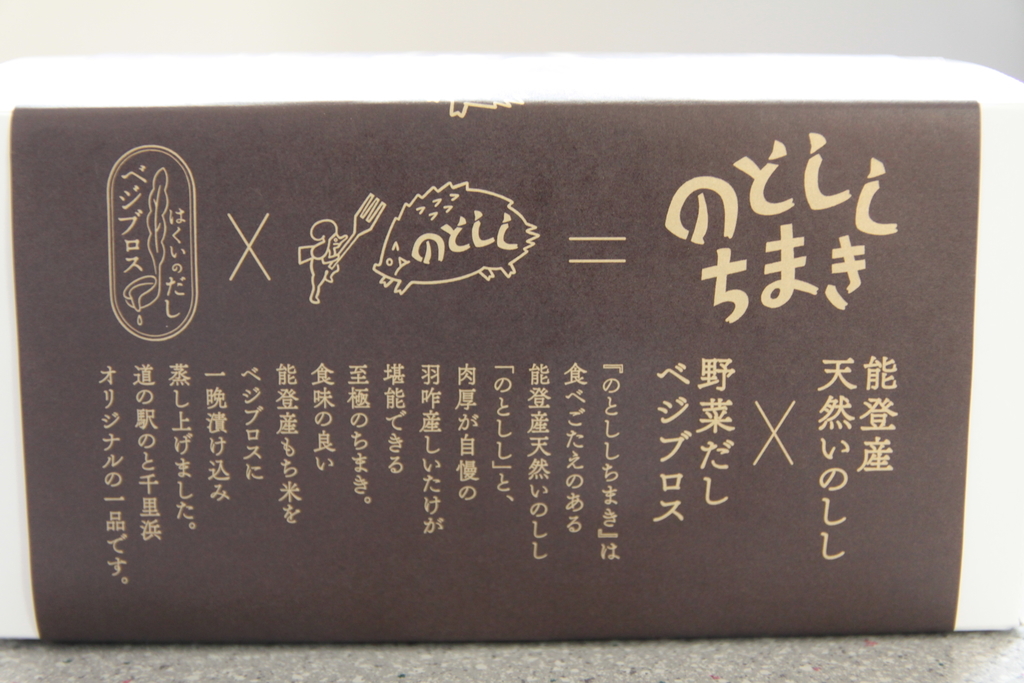 のとしし
ちまき
のとしし
はくいのだし
ベジブロス
能登産
天然いのしし
野菜だし
ベジブロス
『のとししちまき』は
食べごたえのある
能登産天然いのしし
「のとしし」と、
肉厚が自慢の
羽咋産しいたけが
堪能できる
至極のちまき。
食味の良い
能登産もち米を
ベジブロスに
一晩漬け込み
蒸し上げました。
道の駅のと千里浜
オリジナルの一品です。